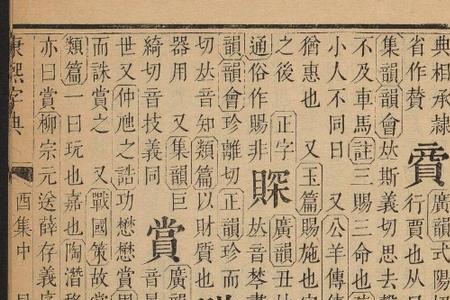 典相承隷
省作賛
𧶜
廣韻式陽
行賈也从貝
集韻韻會𠀤斯義切思去
不及車馬註三賜三命也
小人不同日　又公羊傳
猶惠也　又玉篇賜施也
之後　正字
通俗作賜非
賝
廣韻丑
𠀤音琴
韻韻會珍離切正韻珍而
切𠀤音知類篇以財質也
器用　又集韻巨
綺切音技義同
賞
廣韻
音
世又仲虺之誥功懋懋賞
而誅賞之　又戰國策故賞
類篇一曰玩也嘉也陶潛移
亦曰賞柳宗元送薛存義序
康熙字典　酉集中